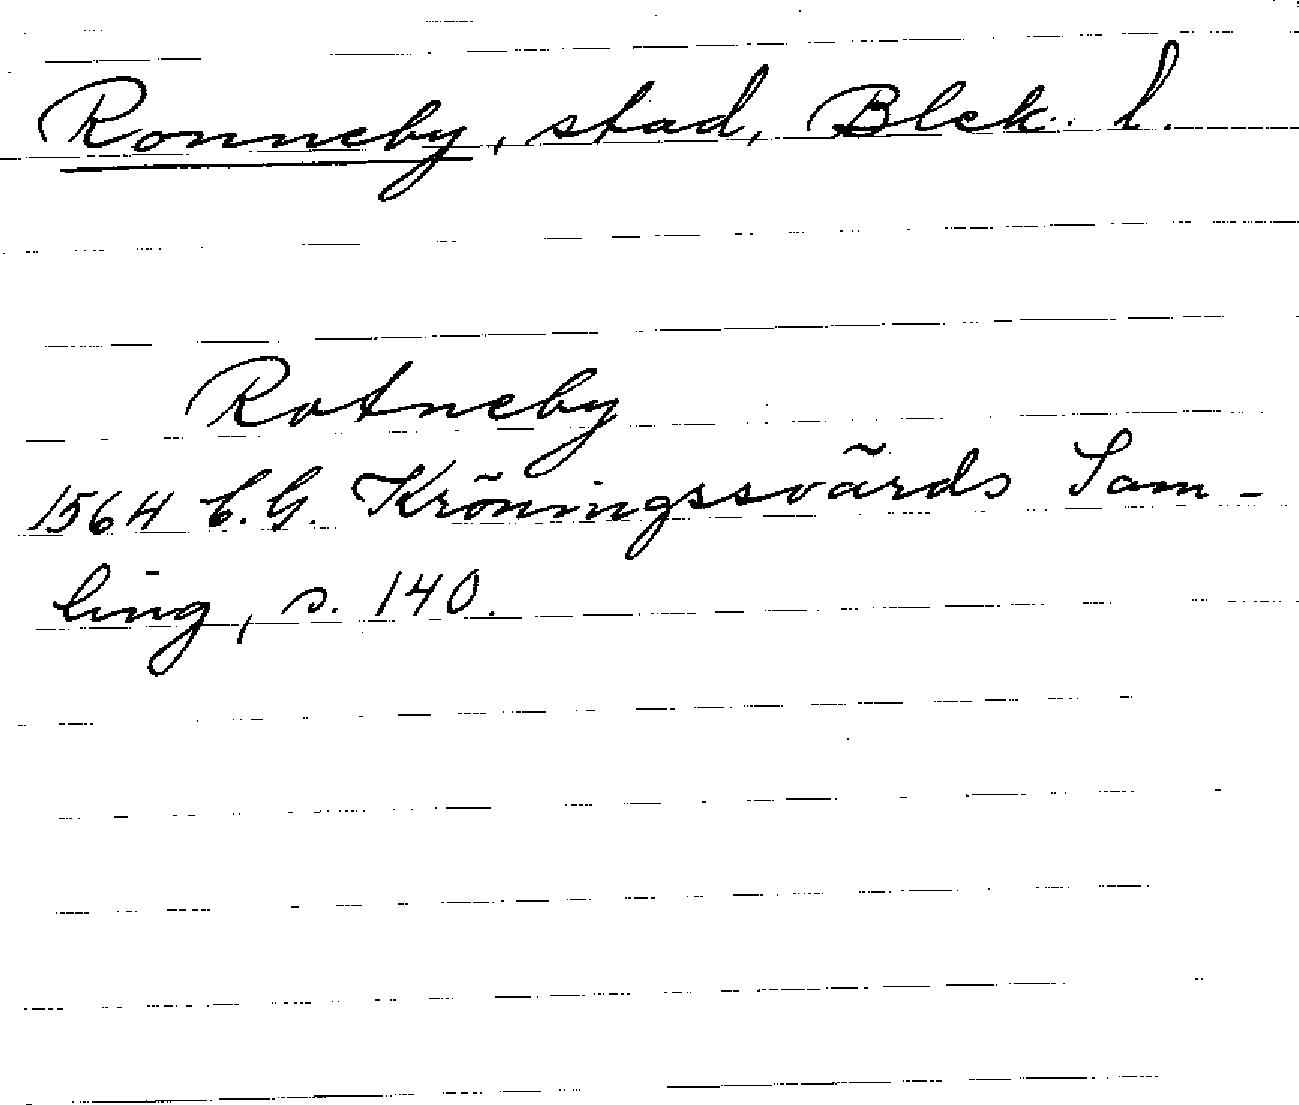 Ronneby, stad, Blek. l.
Rotneby
1564 C.G. Kröningssvärds Sam-
ling, s. 140.